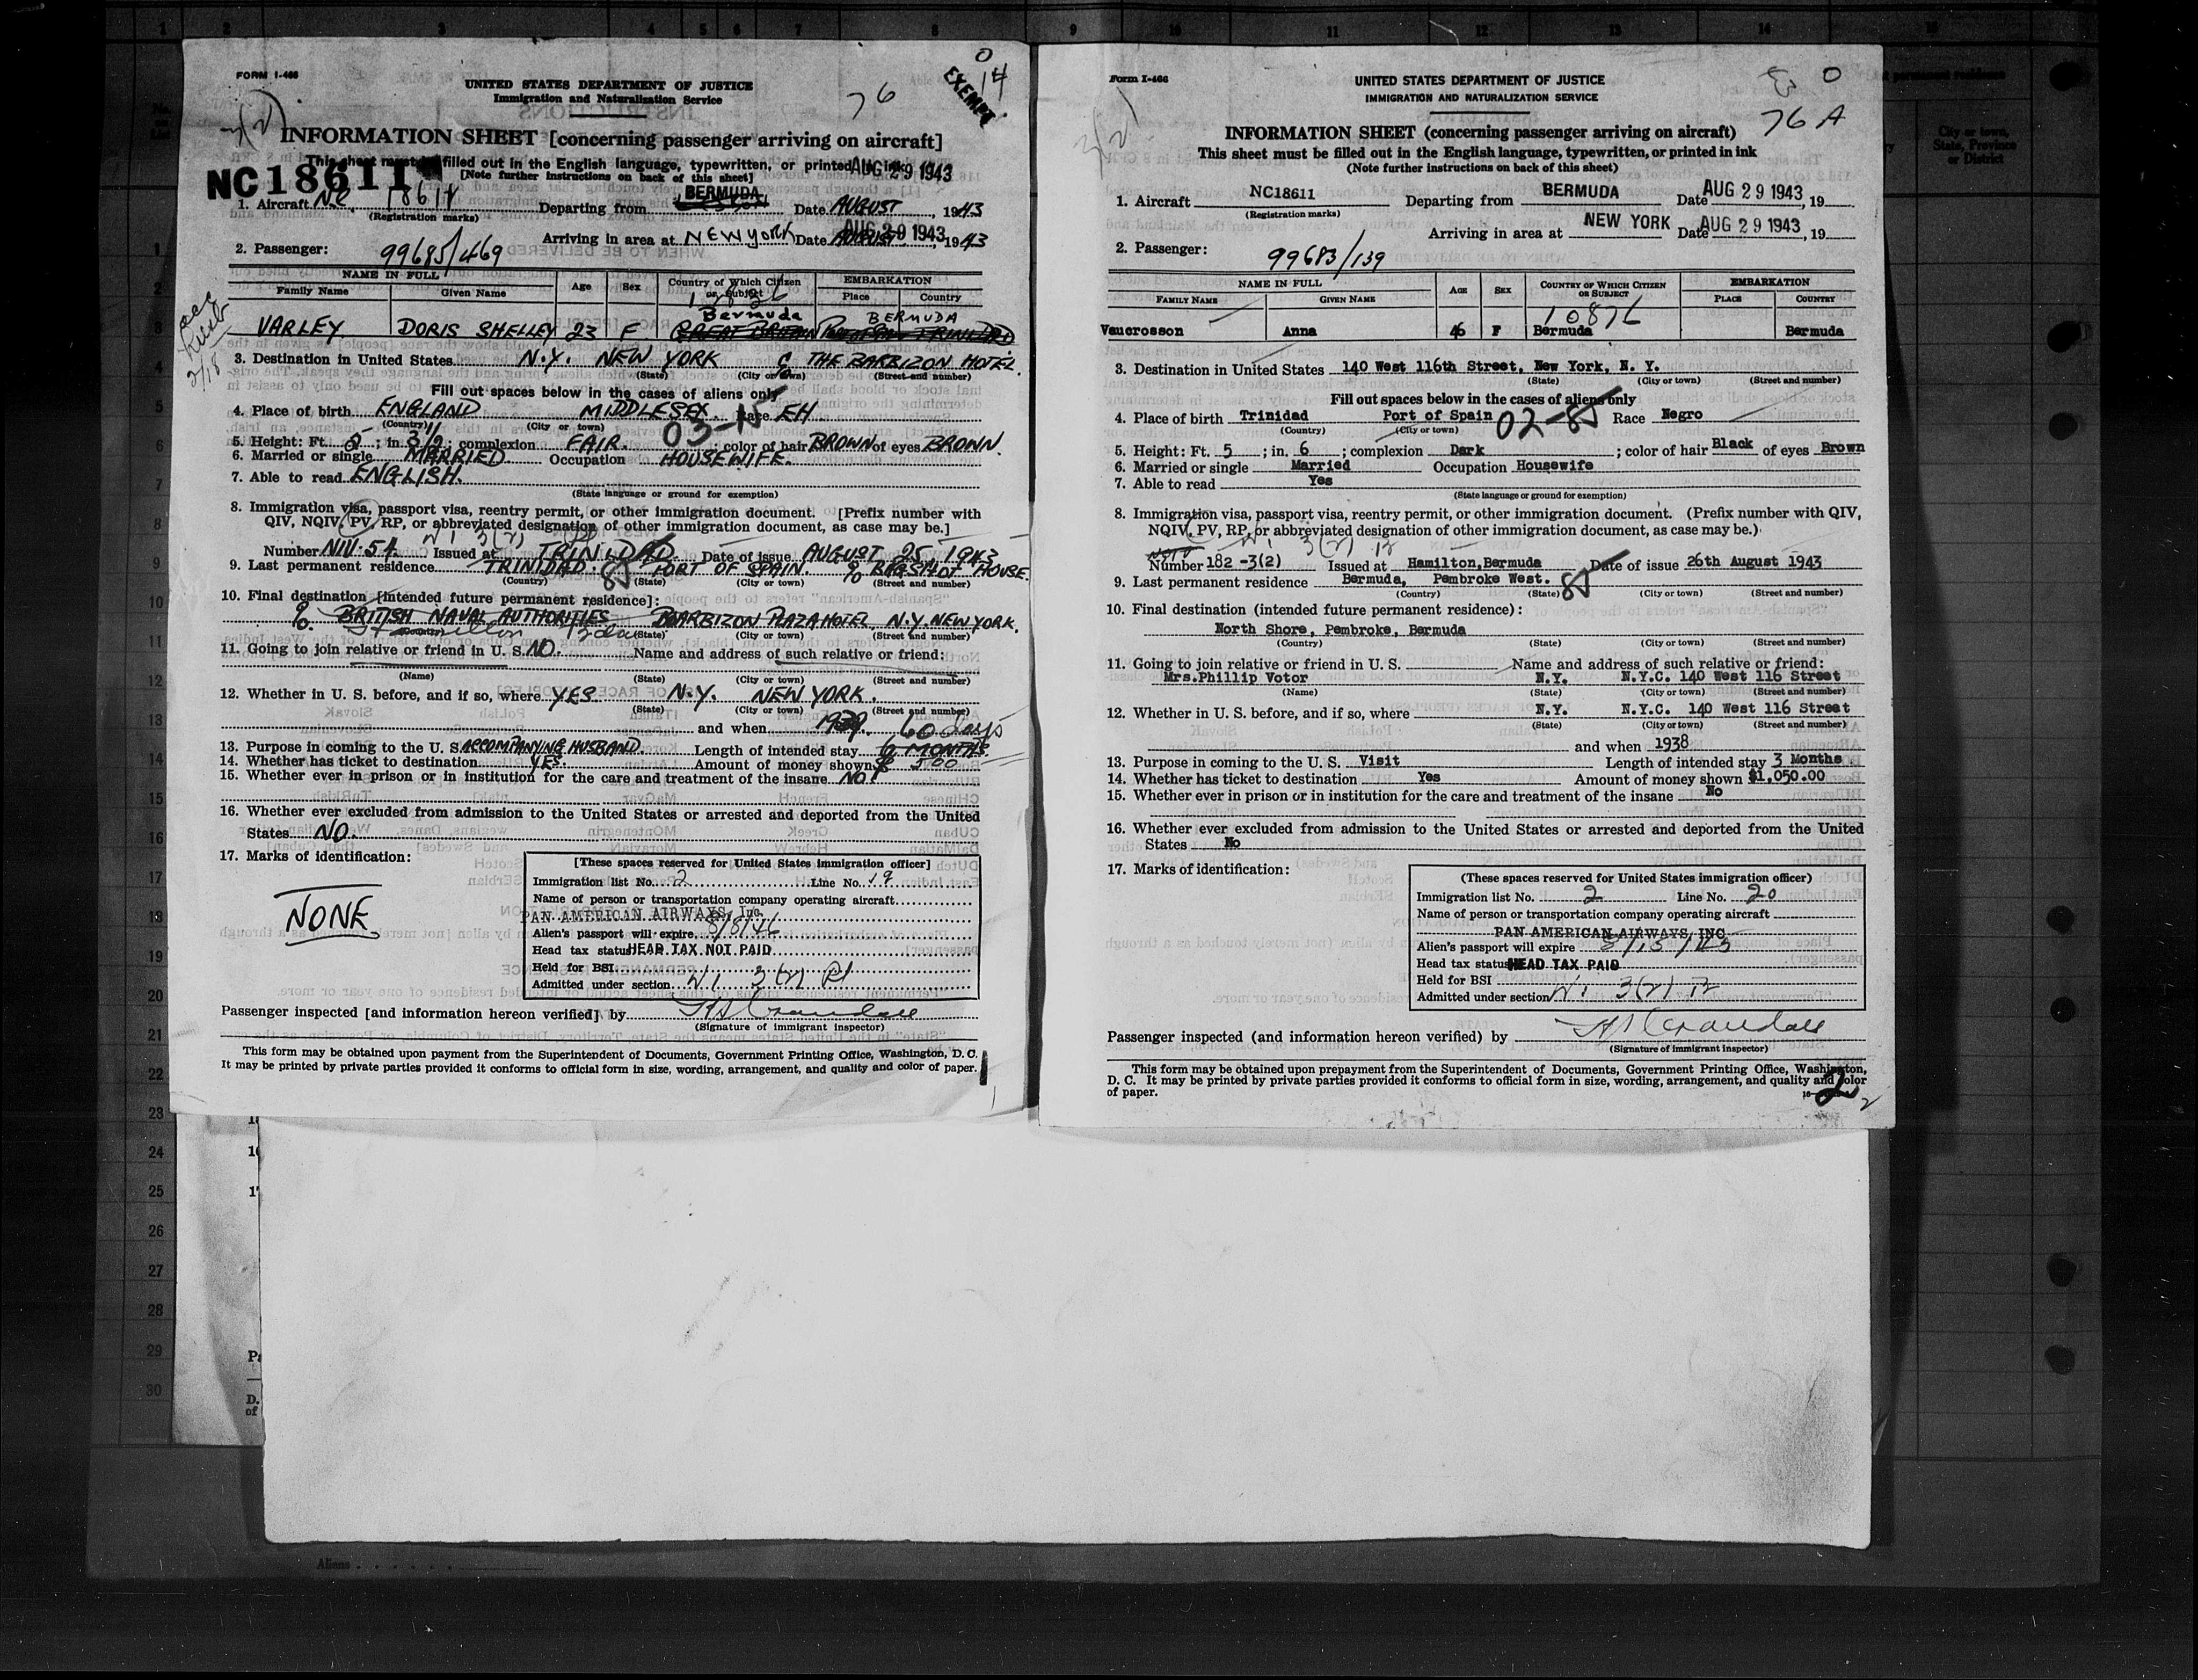 FORM I-466
UNITED STATES DEPARTMENT OF JUSTICE
Immigration and Naturalization Service
76
0
14
EXEMPT
3(2)
INFORMATION SHEET [concerning passenger arriving on aircraft]
This sheet must be filled out in the English language, typewritten, or printed in ink
[Note further instructions on back of this sheet]
NC18611
AUG 29 1943
1. Aircraft NC 18611 Departing from BERMUDA Date AUGUST, 1943
(Registration marks)
Arriving in area at NEW YORK Date AUG 29 1943, 1943
2. Passenger: 99685/469
NAME IN FULL Age Sex Country of Which Citizen or Subject EMBARKATION
Family Name Given Name Place Country
VARLEY DORIS SHELLEY 23 F Bermuda BERMUDA
GREAT BRITAIN
3. Destination in United States N.Y. NEW YORK % THE BARBIZON HOTEL.
(State) (City or town) (Street and number)
Fill out spaces below in the cases of aliens only
4. Place of birth ENGLAND MIDDLESEX. 03-15 Race EH
(Country) (City or town)
5. Height: Ft. 5; in. 3½; complexion FAIR.; color of hair BROWN of eyes BROWN.
6. Married or single MARRIED Occupation HOUSEWIFE.
7. Able to read ENGLISH.
(State language or ground for exemption)
8. Immigration visa, passport visa, reentry permit, or other immigration document. [Prefix number with
QIV, NQIV, PV, RP, or abbreviated designation of other immigration document, as case may be.]
3(2)
Number NIV-54. Issued at TRINIDAD. Date of issue AUGUST 25 1943
9. Last permanent residence TRINIDAD. 85 PORT OF SPAIN. % HOUSE.
(Country) (State) (City or town) (Street and number)
10. Final destination [intended future permanent residece]:
% BRITISH NAVAL AUTHORITIES BARBIZON PLAZA HOTEL, N.Y. NEW YORK.
(Country) (State) (City or town) (Street and number)
11. Going to join relative or friend in U. S. NO. Name and address of such relative or friend:
(Name) (State) (City or town) (Street and number)
12. Whether in U. S. before, and if so, where YES. N.Y. NEW YORK.
(State) (City or town) (Street and number)
and when 1939. 60 days
13. Purpose in coming to the U. S. ACCOMPANYING HUSBAND. Length of intended stay 6 MONTHS.
14. Whether has ticket to destination YES. Amount of money shown $ 500
15. Whether ever in prison or in institution for the care and treatment of the insane NO
16. Whether ever excluded from admission to the United States or arrested and deported from the United
States NO.
17. Marks of identification:
NONE
[These spaces reserved for United States immigration officer]
Immigration list No. 2 Line No. 19
Name of person or transportation company operating aircraft
PAN AMERICAN AIRWAYS, Inc.
Alien's passport will expire 8/8/46
Head tax status HEAD TAX NOT PAID
Held for BSI
Admitted under section 3(2)
Passenger inspected [and information hereon verified] by
(Signature of immigrant inspector)
This form may be obtained upon payment from the Superintendent of Documents, Government Printing Office, Washington, D. C.
It may be printed by private parties provided it conforms to official form in size, wording, arrangement, and quality and color of paper.
Form I-466
UNITED STATES DEPARTMENT OF JUSTICE
IMMIGRATION AND NATURALIZATION SERVICE
0
76 A
3(2)
INFORMATION SHEET (concerning passenger arriving on aircraft)
This sheet must be filled out in the English language, typewritten, or printed in ink
(Note further instructions on back of this sheet)
1. Aircraft NC18611 Departing from BERMUDA Date AUG 29 1943, 19
(Registration marks)
Arriving in area at NEW YORK Date AUG 29 1943, 19
2. Passenger: 99683/139
NAME IN FULL AGE SEX COUNTRY OF WHICH CITIZEN OR SUBJECT EMBARKATION
FAMILY NAME GIVEN NAME PLACE COUNTRY
10876
Vaucrosson Anna 46 F Bermuda Bermuda
3. Destination in United States 140 West 116th Street, New York, N. Y.
(State) (City or town) (Street and number)
Fill out spaces below in the cases of aliens only
4. Place of birth Trinidad Port of Spain 02-85 Race Negro
(Country) (City or town)
5. Height: Ft. 5; in. 6; complexion Dark; color of hair Black of eyes Brown
6. Married or single Married Occupation Housewife
7. Able to read Yes
(State language or ground for exemption)
8. Immigration visa, passport visa, reentry permit, or other immigration document. (Prefix number with QIV,
NQIV, PV, RP, or abbreviated designation of other immigration document, as case may be.)
3(2)
Number 182 -3(2) Issued at Hamilton, Bermuda Date of issue 26th August 1943
9. Last permanent residence Bermuda, Pembroke West. 85
(Country) (State) (City or town) (Street and number)
10. Final destination (intended future permanent residence):
North Shore, Pembroke, Bermuda
(Country) (State) (City or town) (Street and number)
11. Going to join relative or friend in U. S. Name and address of such relative or friend:
Mrs.Phillip Votor N.Y. N.Y.C. 140 West 116 Street
(Name) (State) (City or town) (Street and number)
12. Whether in U. S. before, and if so, where N.Y. N.Y.C. 140 West 116 Street
(State) (City or town) (Street and number)
and when 1938
13. Purpose in coming to the U. S. Visit Length of intended stay 3 Months
14. Whether has ticket to destination Yes Amount of money shown $1,050.00
15. Whether ever in prison or in institution for the care and treatment of the insane No
16. Whether ever excluded from admission to the United States or arrested and deported from the United
States No
17. Marks of identification:
(These spaces reserved for United States immigration officer)
Immigration list No. 2 Line No. 20
Name of person or transportation company operating aircraft
PAN AMERICAN AIRWAYS, INC.
Alien's passport will expire
Head tax status HEAD TAX PAID
Held for BSI
Admitted under section 3(2)
Passenger inspected (and information hereon verified) by
(Signature of immigrant inspector)
This form may be obtained upon prepayment from the Superintendent of Documents, Government Printing Office, Washington,
D. C. It may be printed by private parties provided it conforms to official form in size, wording, arrangement, and quality and color
of paper.
2
Aliens